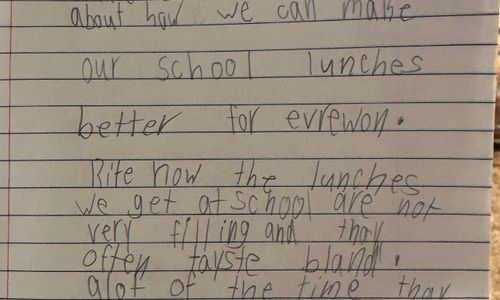 about how we can make
our school lunches
better for evrewon.
Rite now the lunches
we get at school are not
very filling and thay
often tayste bland.
alot of the time thay